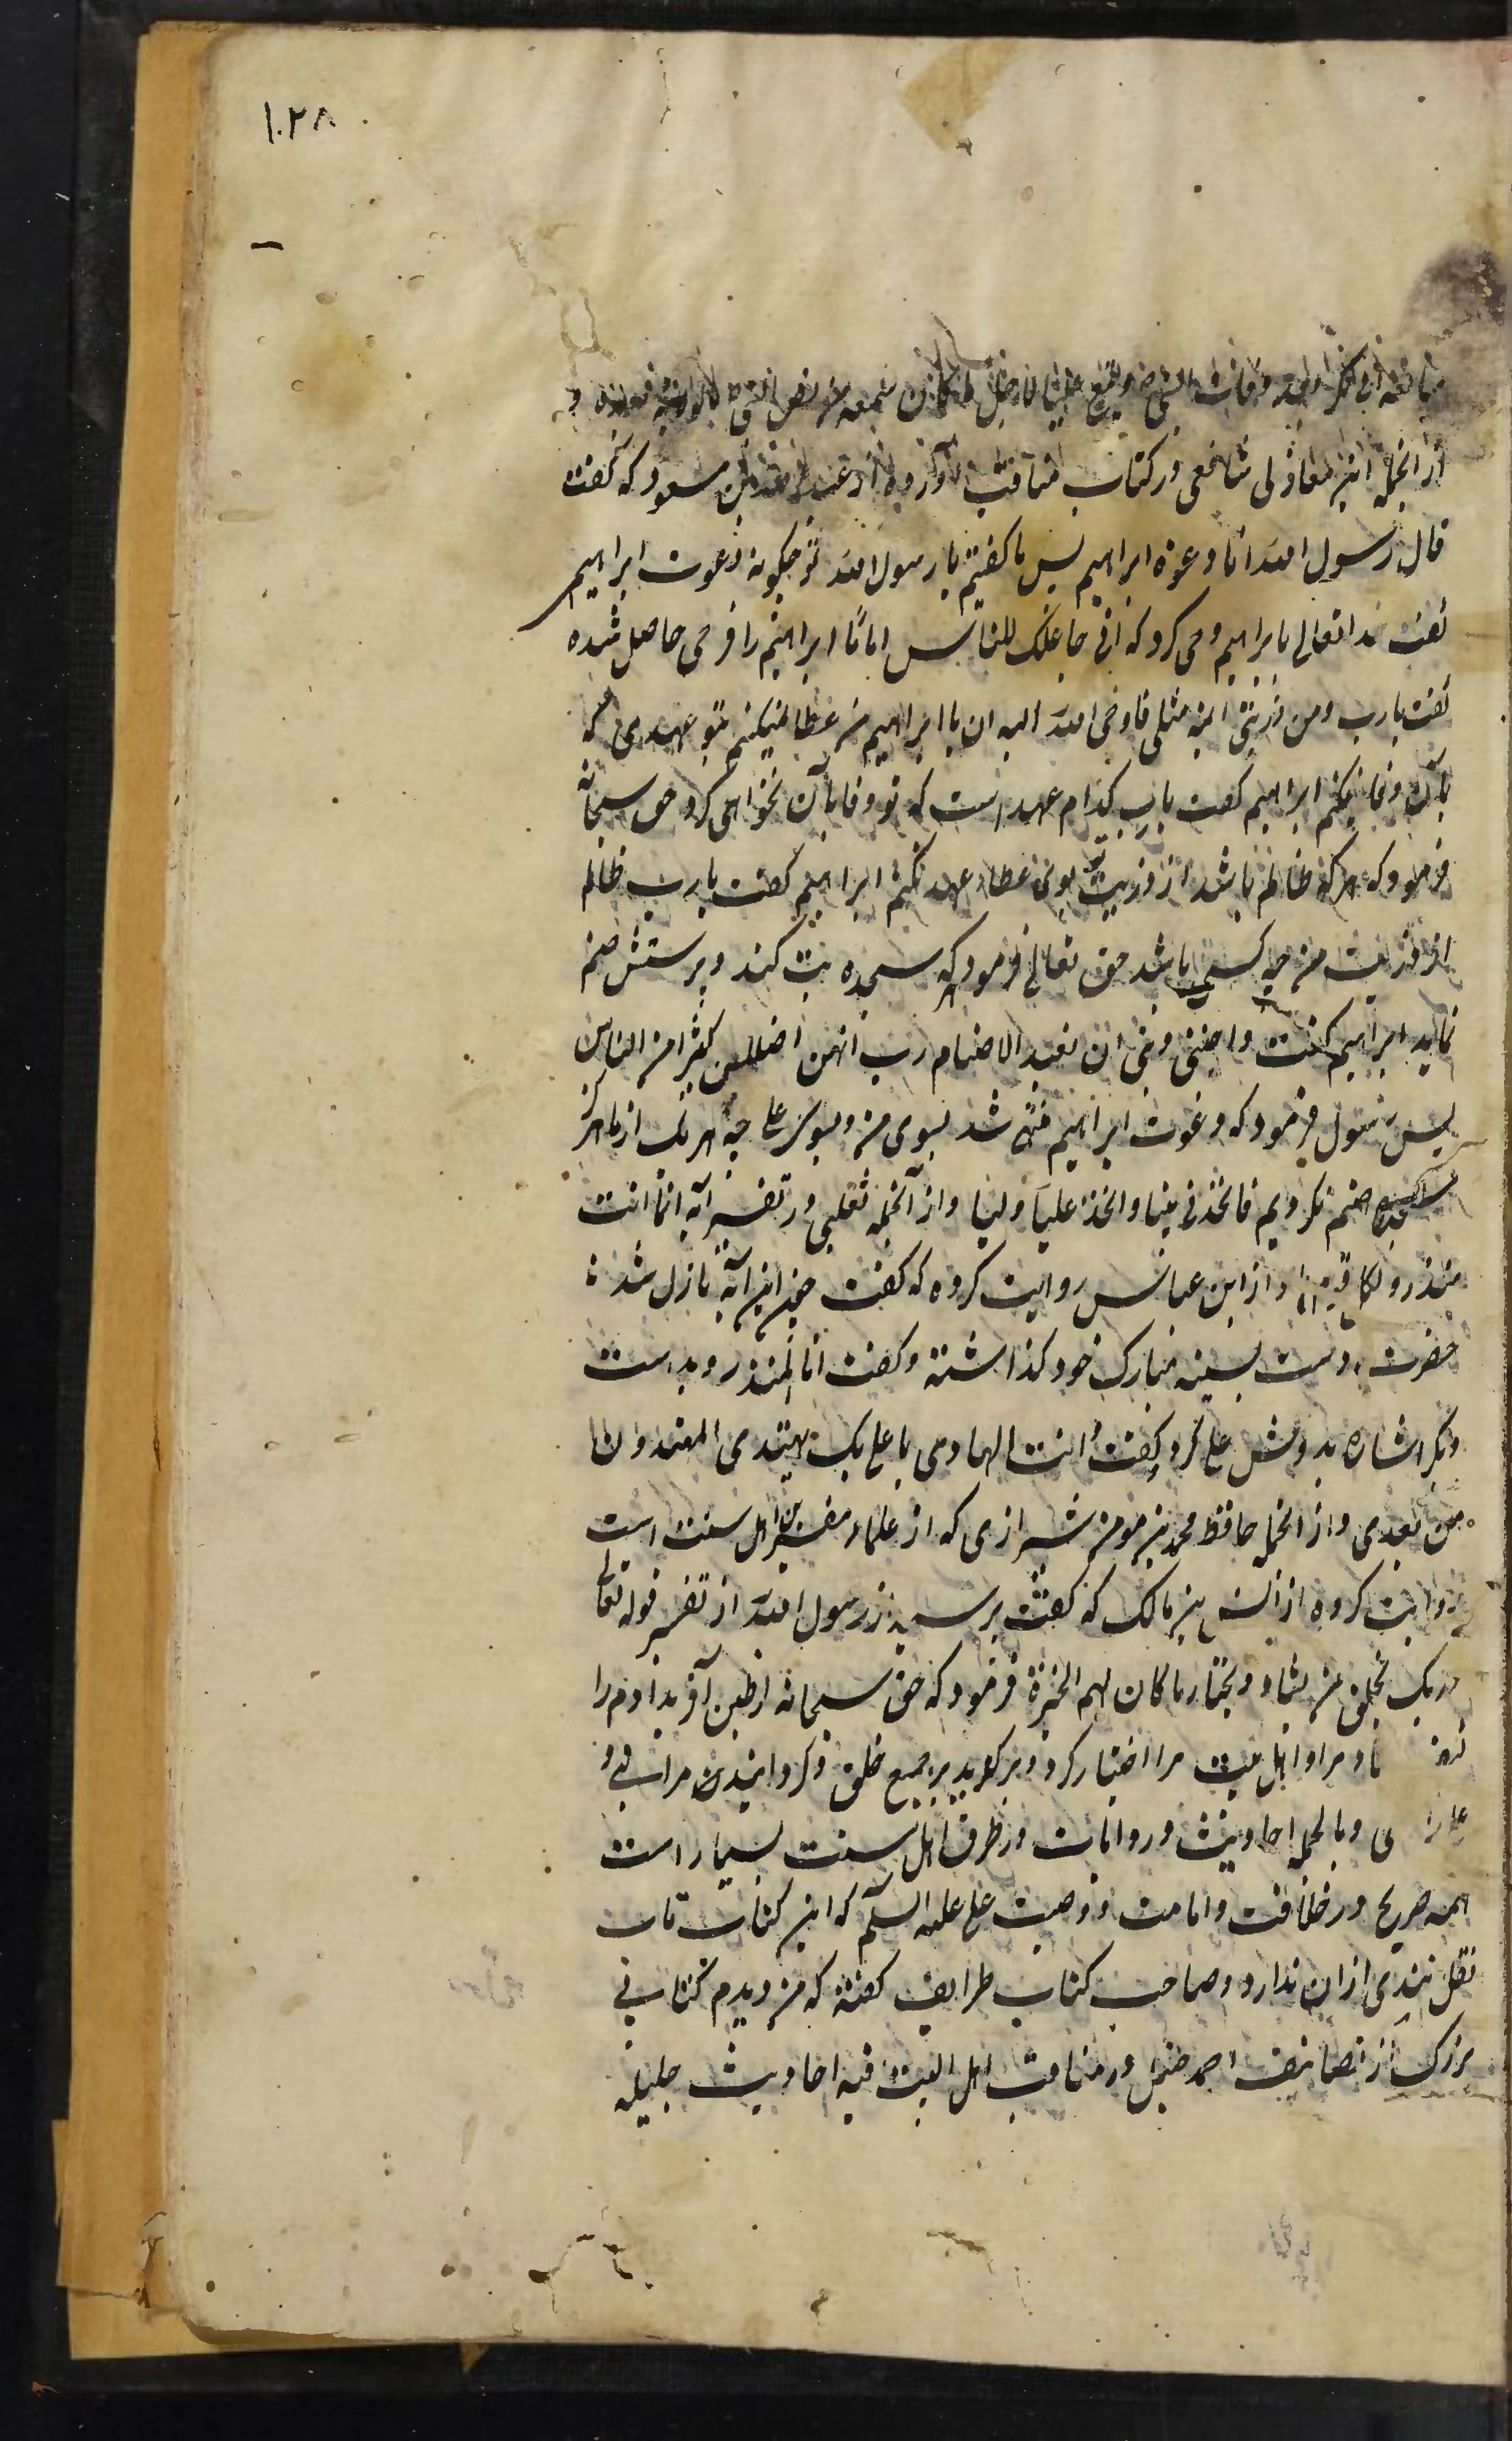 ۱۰۲۸
از انجمله ابن مغازلی شافعی در کتاب مناقب آورده از عبدالله بن مسعود که گفت
قال رسول الله انا دعوة ابراهیم پس ما گفتیم یا رسول الله تو چگونه دعوت ابراهیم
گفت خدا تعالی بابراهیم وحی کرد که انی جاعلک للناس اماما ابراهیم را فرحی حاصل شده
گفت یا رب ومن ذریتی ائمة مثلی فاوحی الله الیه ان یا ابراهیم من عطا نمیکنم بتو عهدی که
بآن وفا نکنم ابراهیم گفت یا رب کدام عهد است که تو وفا بآن نخواهی کرد حق سبحانه
فرمود که هر که ظالم باشد از ذریت تو بوی عطاء عهد نکنم ابراهیم گفت یا رب ظالم
از ذریت من چه کسی باشد حق تعالی فرمود که هر که سجده بت کند و پرستش صنم
نماید ابراهیم گفت واجنبنی وبنی ان نعبد الاصنام رب انهن اضللن کثیرا من الناس
پس رسول فرمود که دعوت ابراهیم منتهی شد بسوی من و بسوی علی چه هر یک از ما هرگز
سجده صنم نکردیم فاتخذنی نبیا واتخذ علیا ولیا واز آنجمله ثعلبی در تفسیر آیه انما انت
منذر ولکل قوم هاد از ابن عباس روایت کرده که گفت چون این آیه نازل شد
حضرت دست بسینه مبارک خود گذاشته و گفت انا المنذر و بدست
دیگر اشاره بدوش علی کرد و گفت انت الهادی یا علی بک یهتدی المهتدون
من بعدی واز انجمله حافظ محمد بن مومن شیرازی که از علماء مفسرین اهل سنت است
روایت کرده از انس بن مالک که گفت پرسیدم از رسول الله از تفسیر قوله تعالی
وربک یخلق من یشاء ویختار ما کان لهم الخیرة فرمود که حق سبحانه از طین آفرید آدم را
و مرا و اهل بیت مرا اختیار کرد و برگزید بر جمیع خلق و گردانیدن مرا نبی و
علی را وبالجمله احادیث و روایات در طرق اهل سنت بسیار است
همه صریح در خلافت و امامت و وصیت علی علیه السلام که این کتاب تاب
نقل بندی از ان ندارد و صاحب کتاب طرایف گفته که من دیدم کتابی
بزرگ از تصانیف احمد حنبل در مناقب اهل البیت فیه احادیث جلیله